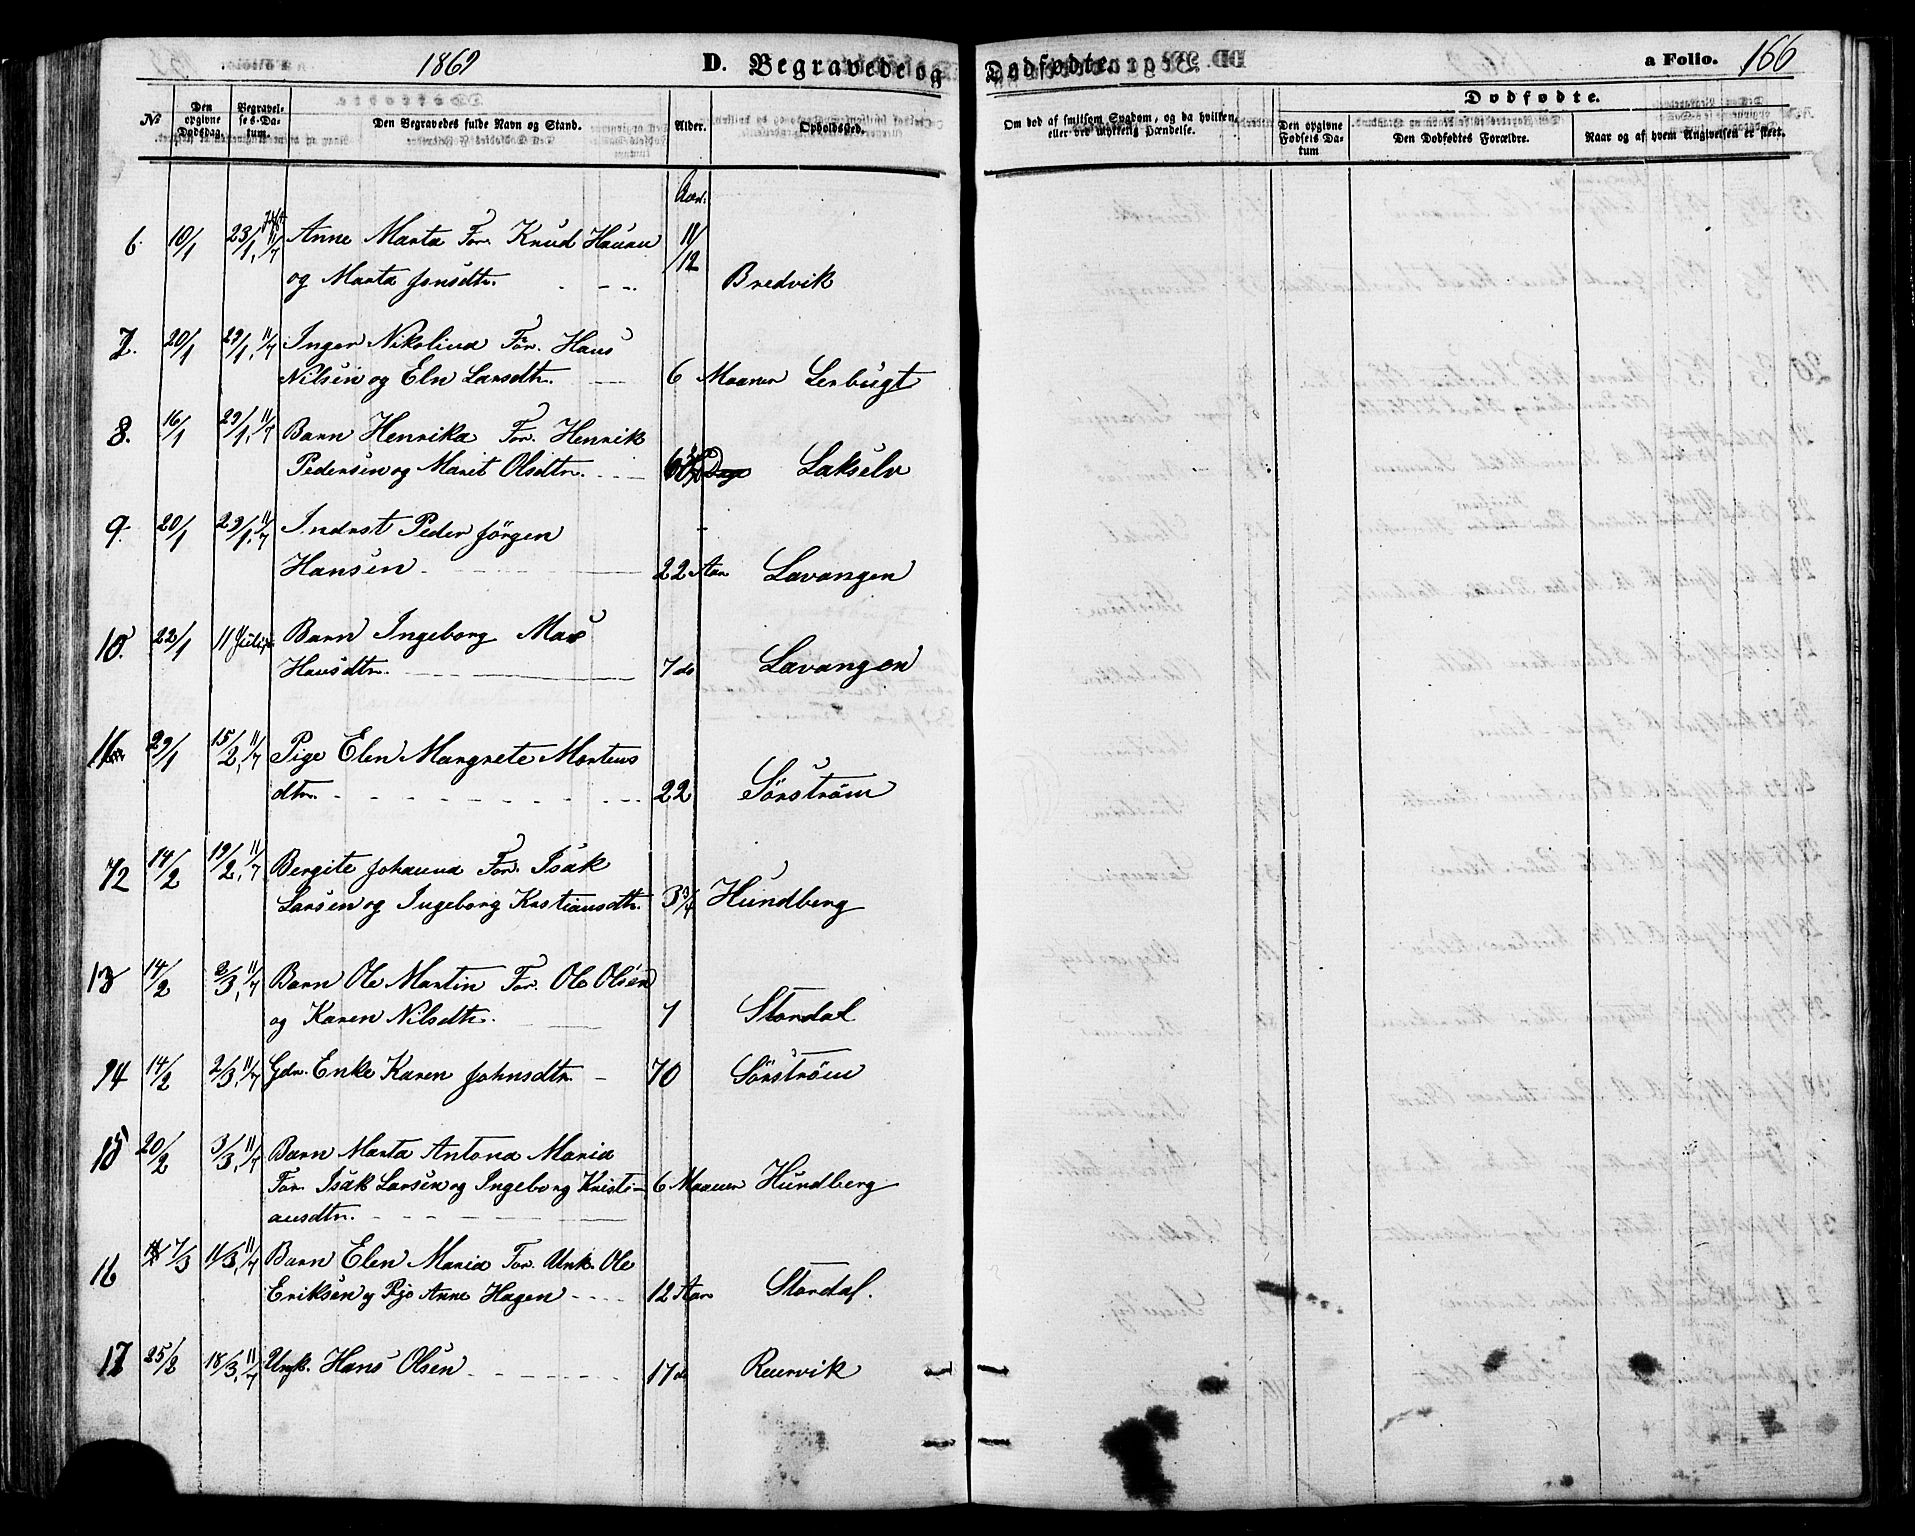 1869 D. Begravede og Dødfødte. a Folio. 166
Dødfødte.
No Den opgivne Dødsdag. Begravelses-Datum. Den Begravedes fulde Navn og Stand. Alder. Opholdssted. Om død af smitsom Sygdom, og da hvilken, eller ved ulykkelig Hændelse. Den opgivne Fødsels Datum Den Dødfødtes Forældre. Naar og af hvem Angivelsen er skeet.
Aar.
6. 10/1 23/1, 11/7 Anne Marta For. Knud Hauan 11/12
og Marta Jonsdtr. Bredvik
7. 20/1 29/1, 11/7 Inger Nikolina For. Hans
Nilsen og Eln Larsdtr. 6 Maaner Lerbugt
8. 16/1 29/1, 11/7 Barn Henrika For. Henrik
Pedersen og Marit Olsdtr. Lakselv
9. 20/1 29/1, 11/7 Inderst Peder Jørgen
Hansen 22 Aar Lavangen
10. 22/1 11 Juli Barn Ingeborg Mar
Hansdtr. 7 do Lavangen
11 29/1 15/2, 11/7 Pige Elen Margrete Mortens
dtr. 22 Sørstrøm
12 14/2 19/2, 11/7 Bergite Johanna For. Isak
Larsen og Ingeborg Kristiansdtr. 3 3/4 Hundberg
13 14/2 2/3, 11/7 Barn Ole Martin For. Ole Olsen
og Karen Nilsdtr. 1 Stordal
14 14/2 2/3, 11/7 Gdr. Enke Karen Johnsdtr. 70 Sørstrøm
15 20/2 3/3, 11/7 Barn Marta Antona Maria
For. Isak Larsen og Ingeborg Kristi-
ansdtr. 6 Maaner Hundberg
16 7/3 11/3, 11/7 Barn Elen Maria For. Unk. Ole
Eriksen og Pige Anne Hagen 12 Aar Stordal.
17 25/2 18/3, 11/7 Ungk. Hans Olsen 17 do Reiervik